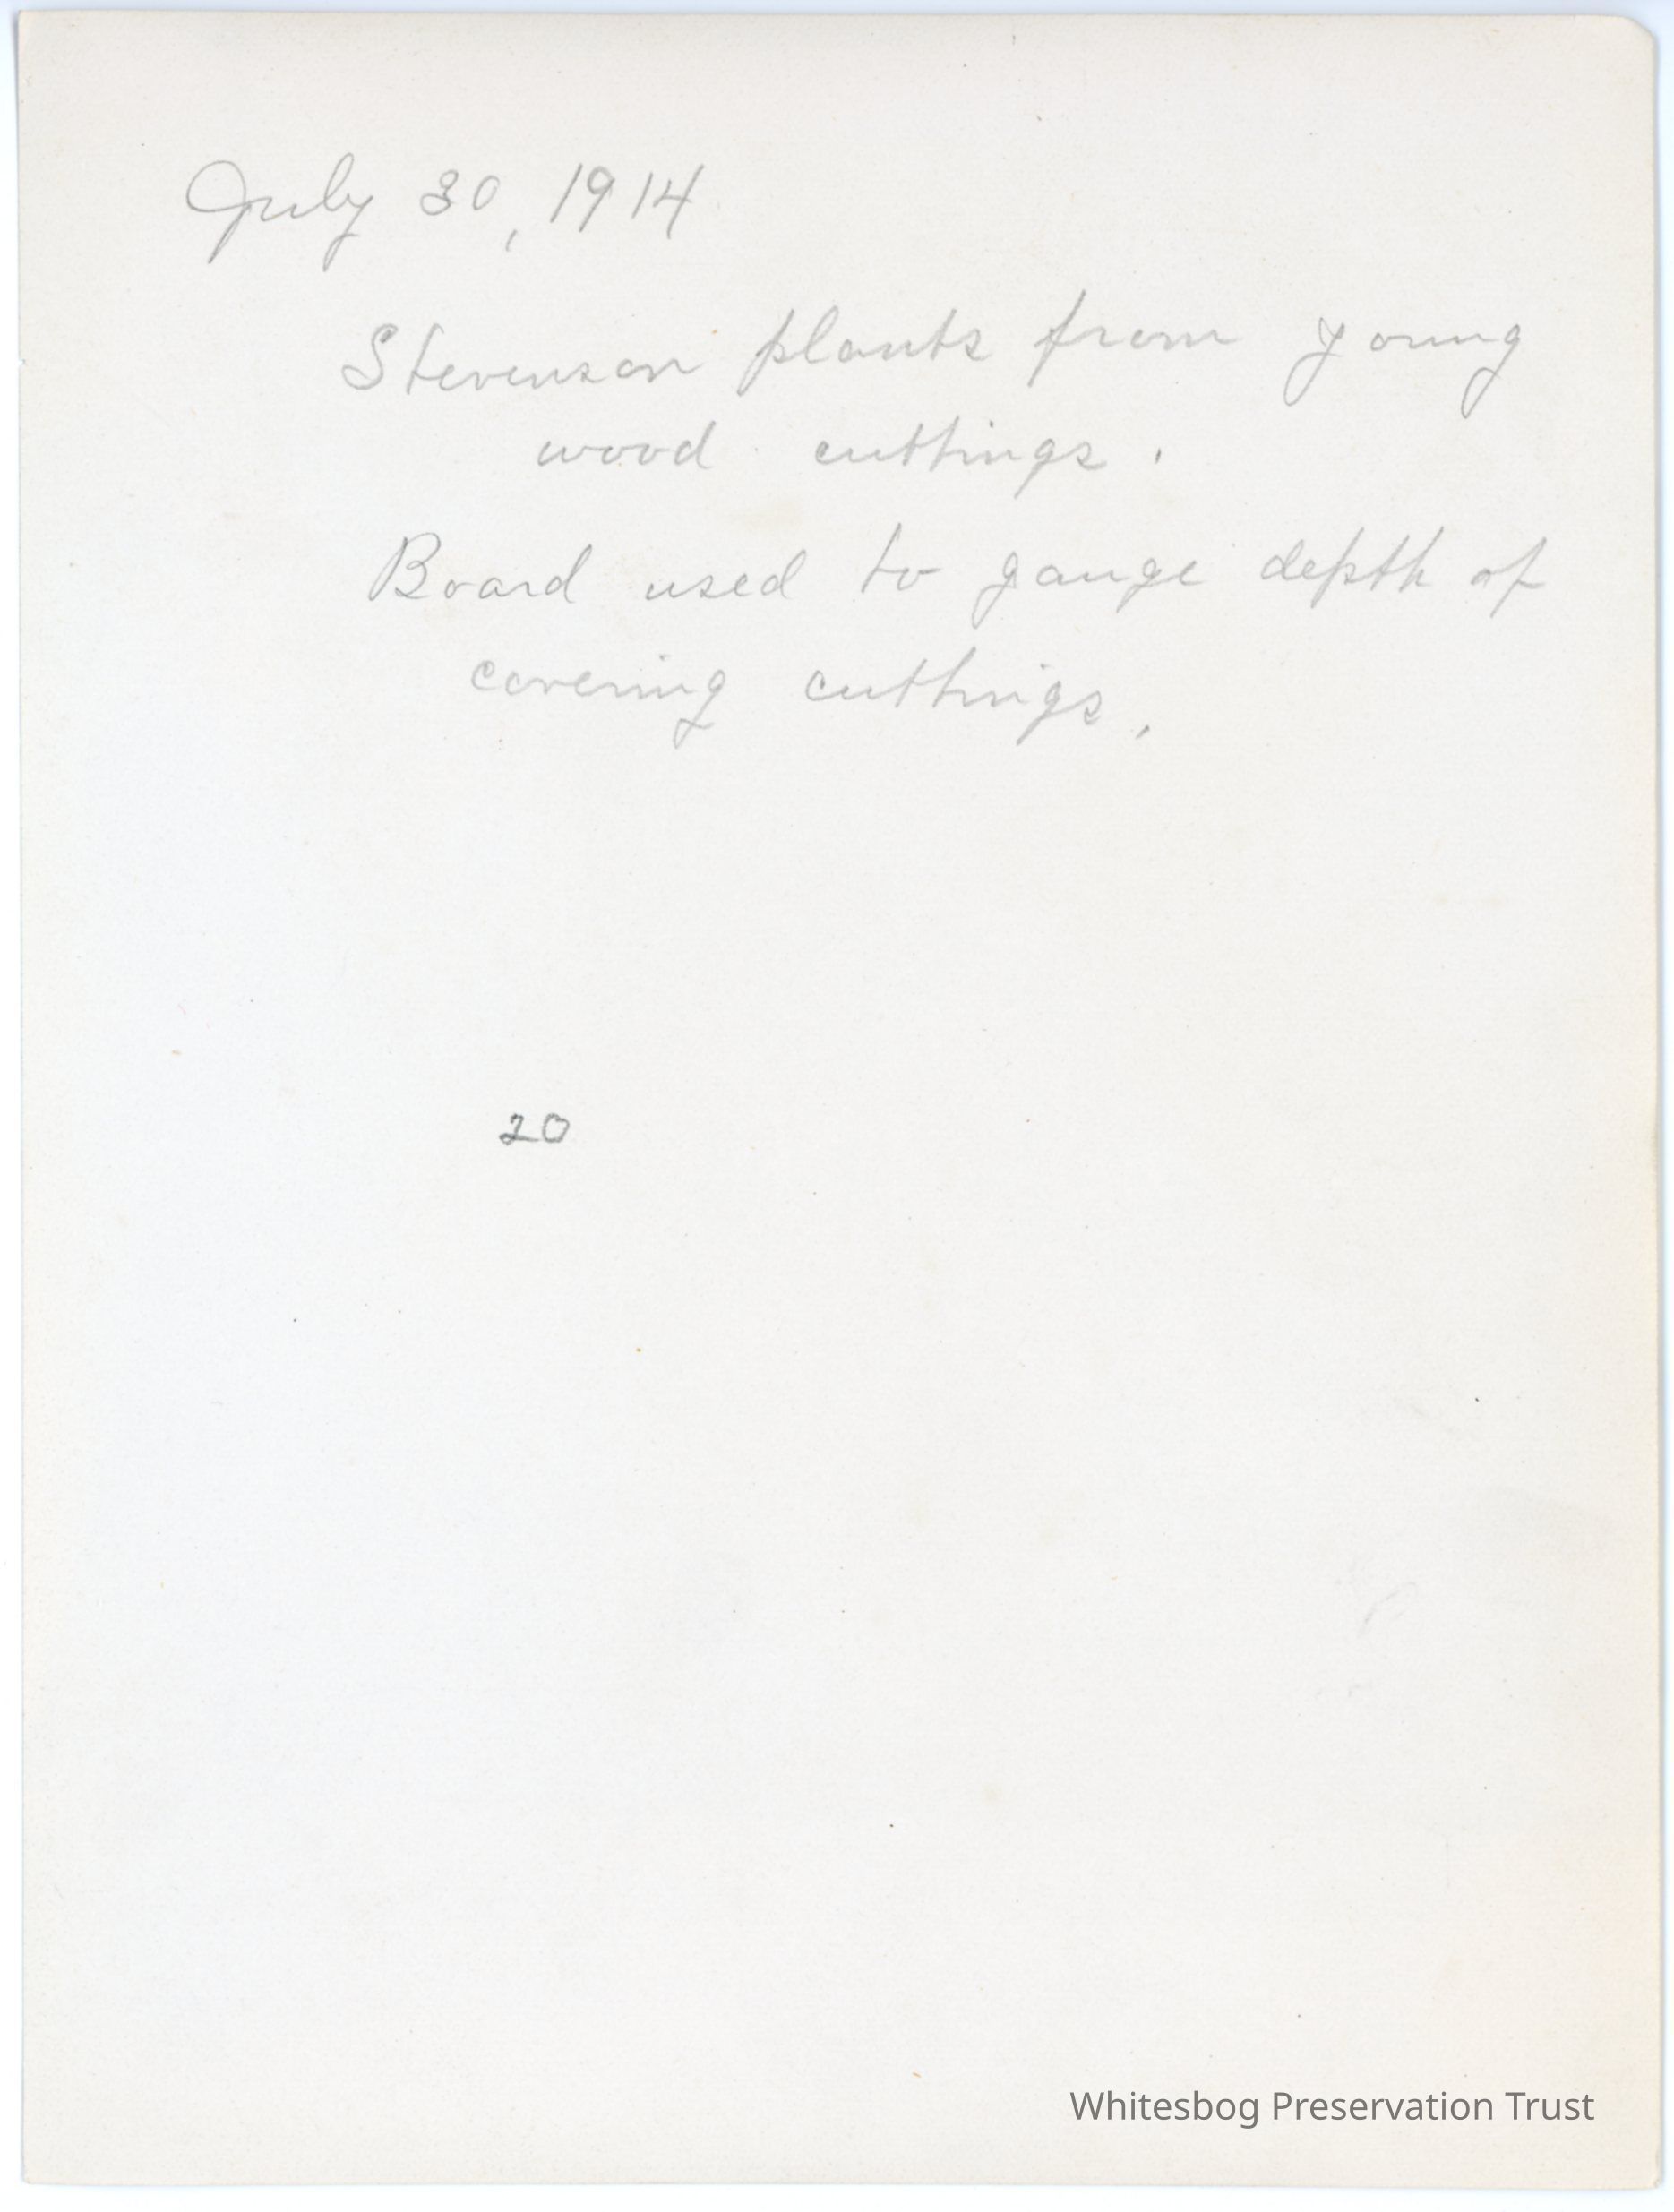 July 30, 1914
Stevenson plants from young
wood cuttings.
Board used to gauge depth of
covering cuttings.
20
Whitesbog Preservation Trust